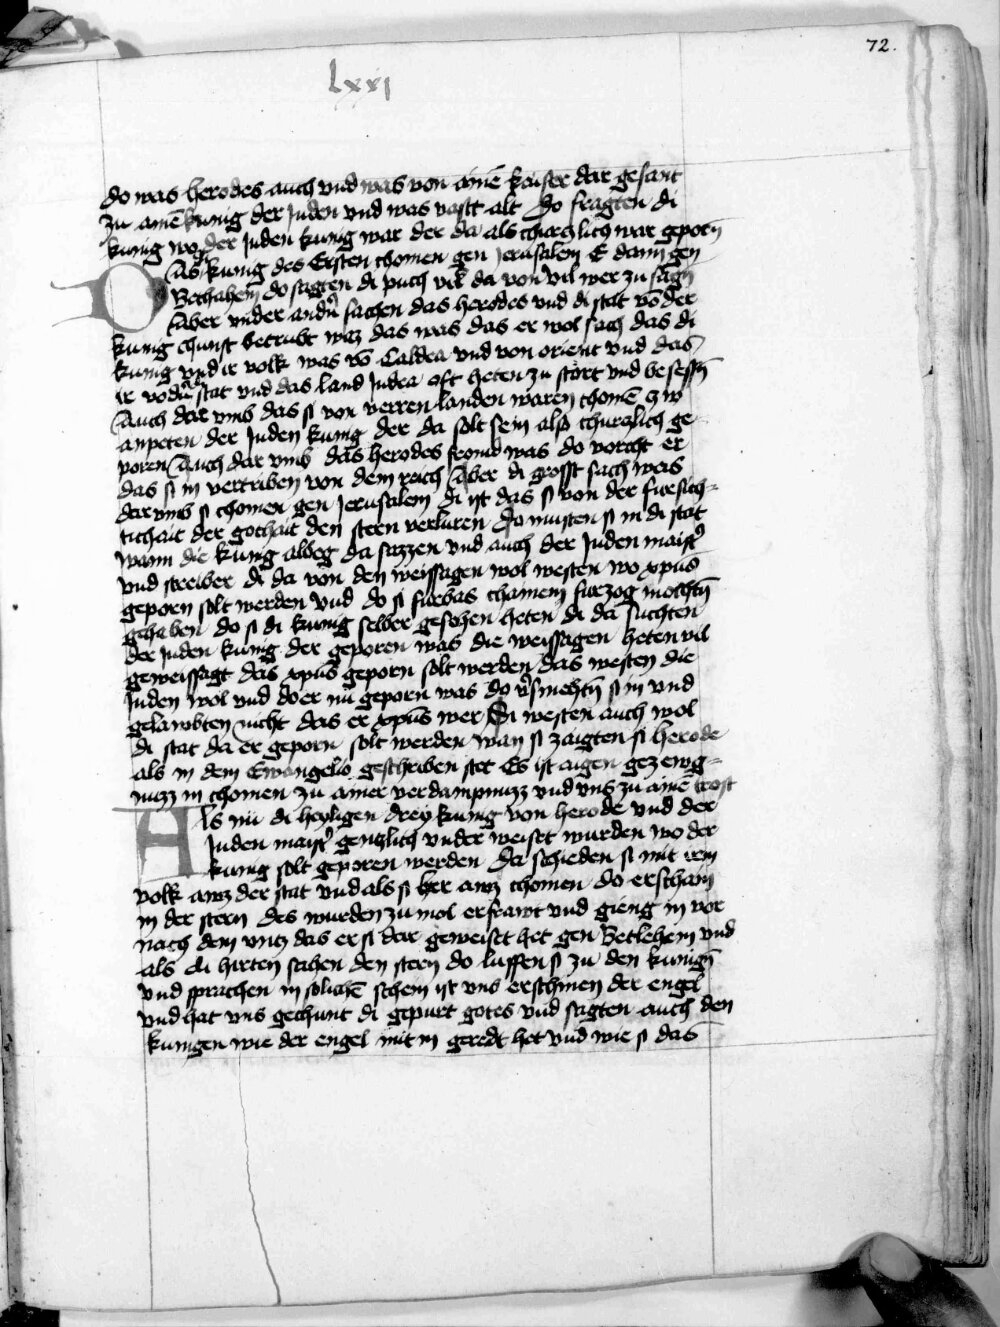 72.
Lxxi
do was herodes auch vnd was von aine͂ kaiser dar gesant
zu aine͂ kunig der Juden vnd was vastt alt Do fragten di
kunig wo der Juden kunig war der da als churczlich war geporn̄
Das di kunig des Ersten chomen gen Jerusalem E dann gen
Bethahem do sagten di puch vil da von vil wer zu sagn̄
Aber vnder andn̄ sachen das herodes vnd di stat vo͂ der
kunig chunft betrubt was das was das er wol sach das di
kunig vnd ir volk was vo͂ Caldea vnd von orient vnd das
ir vodn̄ di stat vnd das land Judea oft heten zu stort vnd besessn̄
Auch dar vmb das si von verren landen waren chome͂ czw
anpeten der Juden kunig der da solt sein also churczlich ge
poren Auch dar vmb das herodes fromd was do vorcht er
das si in vertriben von dem reich Aber di grosst sach was
dar vmb si chomen gen Jerusalem di ist das si von der fursich-
tichait der gothait den stern verluren Do musten si in di stat
wann die kunig albeg da sazzen vnd auch der Juden maist̄
vnd schreiber di da von den weissagen wol westen wo xp̄us
geporn solt werden vnd do si furbas chamen furzog mochtn̄
gehaben do si di kunig selber gesehen heten di da suchten
der Juden kunig der geporen was die weissagen heten vil
geweissagt das xp̄us geporn solt werden das westen die
Juden wol vnd do er nu geporn was do v̄smehtn̄ si in vnd
gelawbten nicht das er xp̄us wer Si westen auch wol
di stat da er geporn solt werden wan si zaigten si herode
als in dem Ewangelio geschriben stet Es ist aigen gezewg-
nuzz in chomen zu ainer verdampnuzz vnd vns zu aine͂ trost
Als nu di heyligen drey kunig von herode vnd der
Juden maist̄ genczlich vnder weiset wurden wo der
kunig solt geporen werden Da schieden si mit irem
volk awz der stat vnd als si her awz chomen do erschain
in der stern des wurden zu mol erfrawt vnd gieng in vor
nach dem vntz das er si dar geweiset het gen Betlehem vnd
als di hirten sahen den stern do luffen si zu den kunign̄
vnd sprachen in soliche͂ schein ist vns erschinen der engel
vnd hat vns gechunt di gepurt gotes vnd sagten auch den
kunigen wie der engel mit in geredt het vnd wie si das